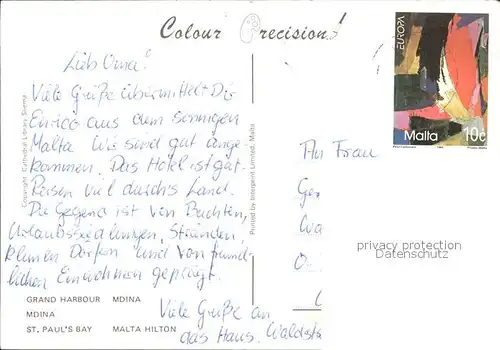 Colour Precision!
EUROPA
Malta 10c
Lieb Oma!
Viele Grüße übermittelt Dir
Enrico aus dem sonnigen
Malta Wir sind gut ange-
kommen. Das Hotel ist gut.
Reisen viel durch's Land.
Die Gegend ist von Buchten,
Urlaubssiedlungen, Stränden,
kleinen Dörfern und von freund-
lichen Einwohnern geprägt.
Viele Grüße an
das Haus. Waldstr
An Frau
Copyright: Cathedral Library Sliema
Printed by Interprint Limited, Malta
privacy protection
Datenschutz
GRAND HARBOUR MDINA
MDINA
ST. PAUL'S BAY MALTA HILTON